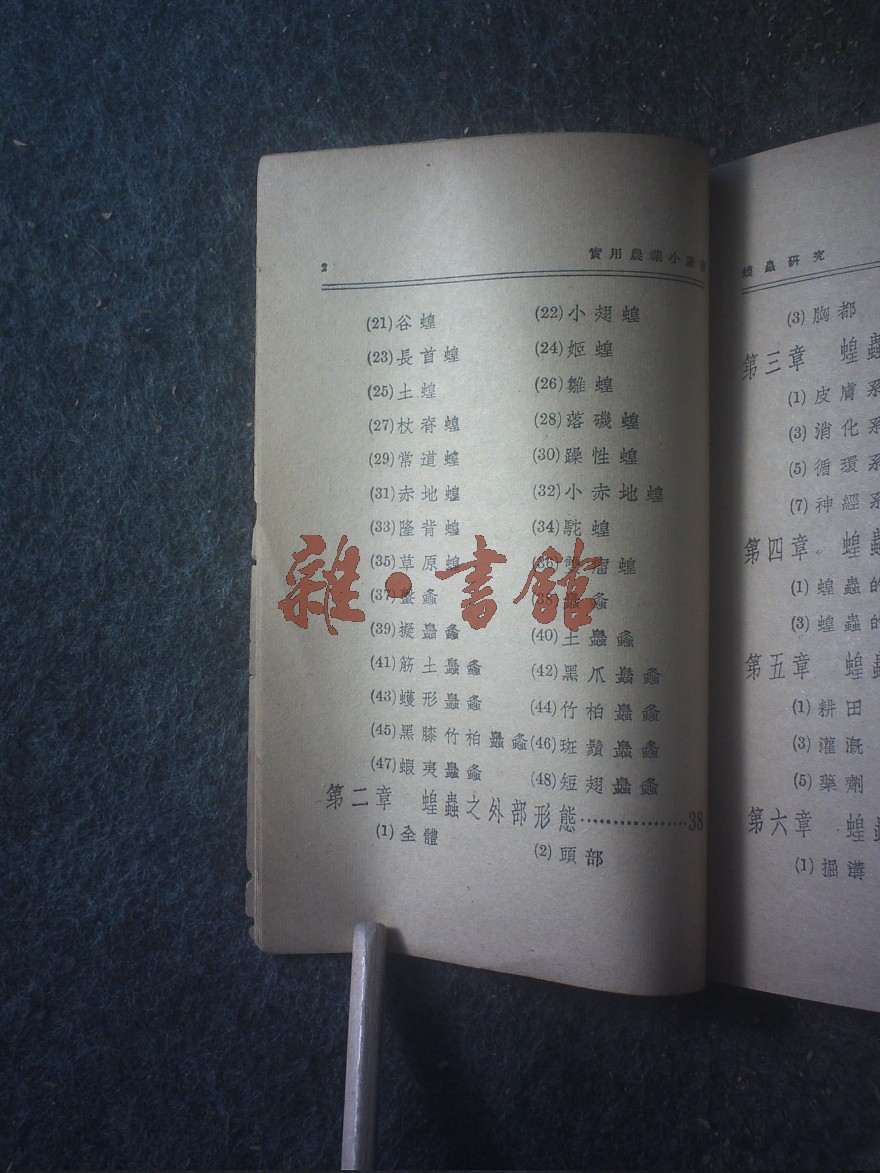 2 實用農業小叢
(21)谷蝗 (22)小翅蝗
(23)長首蝗 (24)姬蝗
(25)土蝗 (26)雛蝗
(27)杖脊蝗 (28)落磯蝗
(29)常道蝗 (30)躁性蝗
(31)赤地蝗 (32)小赤地蝗
(33)隆背蝗 (34)駝蝗
(35)草原蝗 (36)瘤蝗
(37)螽 (38)螽
(39)擬蟲螽 (40)土蟲螽
(41)筋土蟲螽 (42)黑爪蟲螽
(43)蠖形蟲螽 (44)竹柏蟲螽
(45)黑膝竹柏蟲螽 (46)斑鬚蟲螽
(47)蝦夷蟲螽 (48)短翅蟲螽
第二章 蝗蟲之外部形態………………38
(1)全體 (2)頭部
雜·書館
蝗蟲研究
(3)胸都
第三章 蝗蟲
(1)皮膚系
(3)消化系
(5)循環系
(7)神經系
第四章 蝗蟲
(1)蝗蟲的
(3)蝗蟲的
第五章 蝗蟲
(1)耕田
(3)灌漑
(5)藥劑
第六章 蝗蟲
(1)掘溝